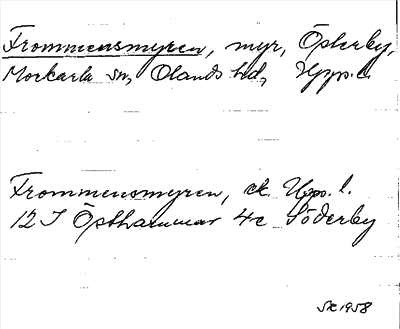 Frommensmyren, myr, Österby,
Morkarla sn, Olands hd, Upps. l.
Frommensmyren, ek. Upps. l.
12 I Östhammar 4c Söderby
SK 1958